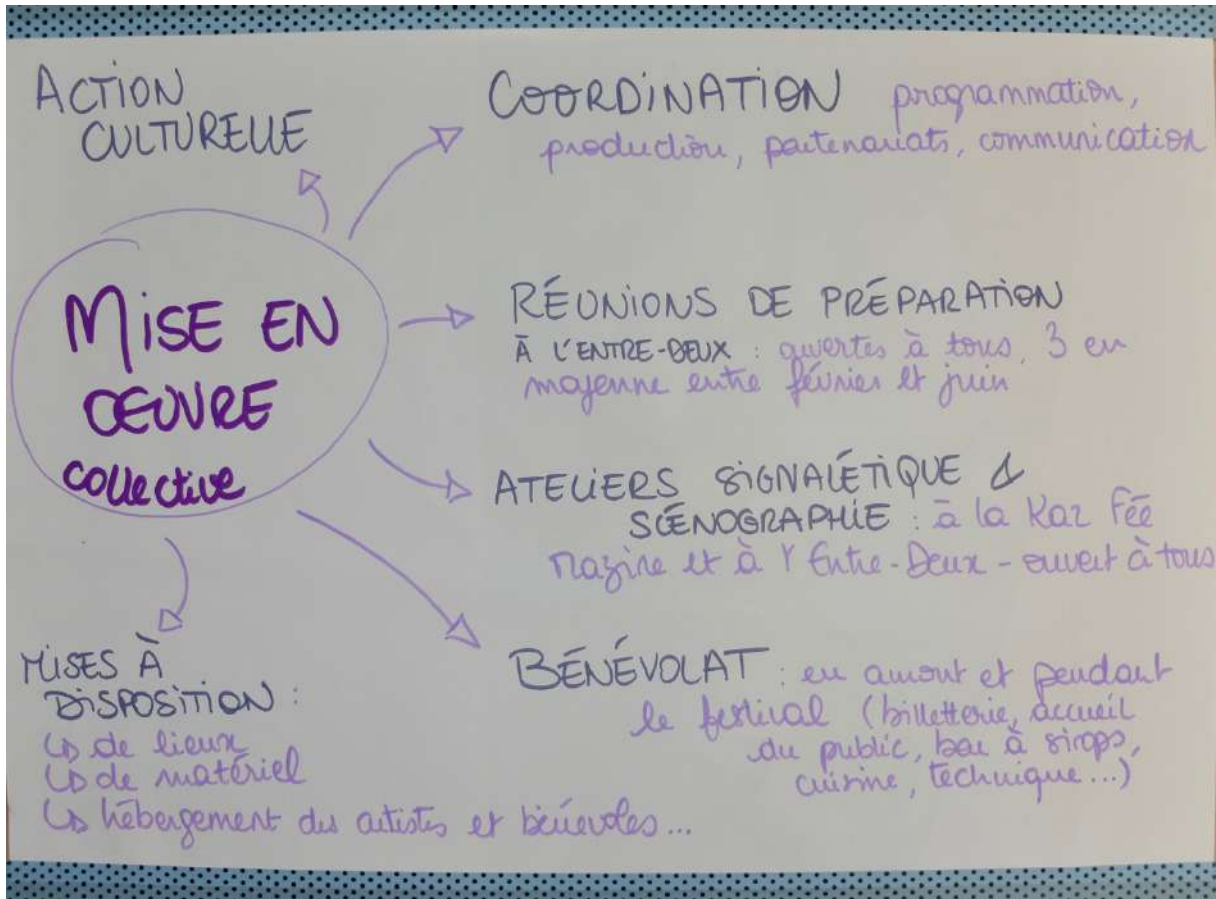 ACTION
CULTURELLE
COORDINATION programmation,
production, partenariats, communication
MISE EN
ŒUVRE
collective
RÉUNIONS DE PRÉPARATION
À L'ENTRE-DEUX : ouvertes à tous, 3 en
moyenne entre février et juin
ATELIERS SIGNALÉTIQUE &
SCÉNOGRAPHIE : à la Kaz Féé
Mazine et à l'Entre-Deux - ouvert à tous
BÉNÉVOLAT : en amont et pendant
le festival (billetterie, accueil
du public, bar à sirops,
cuisine, technique...)
MISES À
DISPOSITION :
↳ de lieux
↳ de matériel
↳ hébergement des artistes et bénévoles...